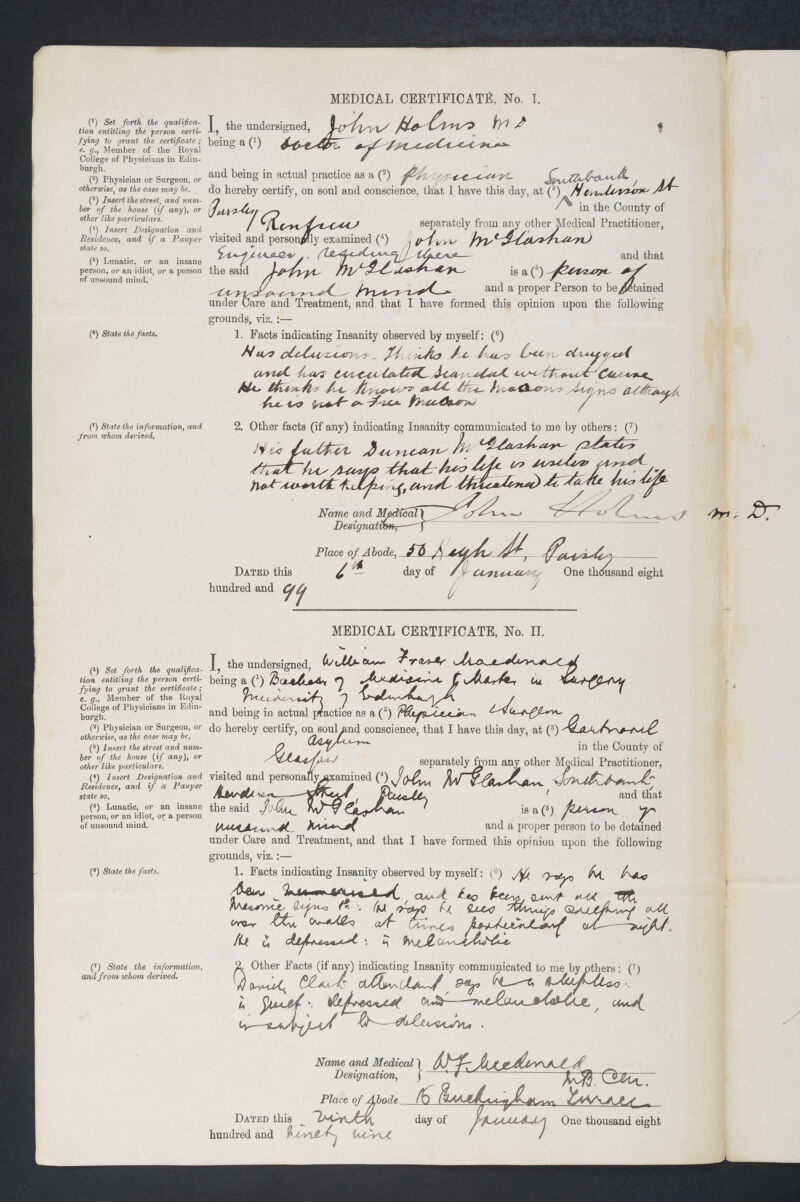 MEDICAL CERTIFICATE, No. I.
(1) Set forth the qualifica-
tion entitling the person certi-
fying to grant the certificate;
e. g., Member of the Royal
College of Physicians in Edin-
burgh.
(2) Physician or Surgeon, or
otherwise, as the case may be.
(3) Insert the street, and num-
ber of the house (if any), or
other like particulars.
(4) Insert Designation and
Residence, and if a Pauper
state so.
(5) Lunatic, or an insane
person, or an idiot, or a person
of unsound mind.
I, the undersigned, John Holms MD
being a (1) Doctor of Medicine
and being in actual practice as a (2) Physician Southbank
do hereby certify, on soul and conscience, that I have this day, at (3) Henderson St
Paisley in the County of
Renfrew separately from any other Medical Practitioner,
visited and personally examined (4) John McGlashan
Engineer residing there and that
the said John McGlashan is a (5) person of
unsound mind and a proper Person to be detained
under Care and Treatment, and that I have formed this opinion upon the following
grounds, viz. :—
(6) State the facts.
1. Facts indicating Insanity observed by myself: (6)
Has delusions. Thinks he has been drugged
and has circulated scandal without cause
He thinks he knows all the Masons signs although
he is not a Free Mason
(7) State the information, and
from whom derived.
2. Other facts (if any) indicating Insanity communicated to me by others: (7)
His father Duncan McGlashan states
that he says that his life is useless and
not worth keeping, and threatened to take his life
Name and Medical } John Holms M.D.
Designation,
Place of Abode, 50 High St, Paisley
DATED this 6th day of January One thousand eight
hundred and 99
MEDICAL CERTIFICATE, No. II.
(1) Set forth the qualifica-
tion entitling the person certi-
fying to grant the certificate;
e. g., Member of the Royal
College of Physicians in Edin-
burgh.
(2) Physician or Surgeon, or
otherwise, as the case may be.
(3) Insert the street and num-
ber of the house (if any), or
other like particulars.
(4) Insert Designation and
Residence, and if a Pauper
state so.
(5) Lunatic, or an insane
person, or an idiot, or a person
of unsound mind.
I, the undersigned, William Fraser Macdonald
being a (1) Bachelor of Medicine & Master in Surgery
University of Edinburgh
and being in actual practice as a (2) Physician & Surgeon
do hereby certify, on soul and conscience, that I have this day, at (3) Gartnavel
Asylum in the County of
Glasgow separately from any other Medical Practitioner,
visited and personally examined (4) John McGlashan, Southbank,
Henderson Street Paisley and that
the said John McGlashan is a (5) person of
unsound mind and a proper person to be detained
under Care and Treatment, and that I have formed this opinion upon the following
grounds, viz. :—
(6) State the facts.
1. Facts indicating Insanity observed by myself: (6) He says he has
been mesmerised, and has been sent all the
Masonic signs &c: he says he sees things creeping all
over the walls at times particularly at night.
He is depressed: is melancholic
(7) State the information,
and from whom derived.
2. Other Facts (if any) indicating Insanity communicated to me by others: (7)
Daniel Clark attendant says he is sleepless:
is quiet: depressed and melancholic, and
is subject to delusions.
Name and Medical } W. F. Macdonald
Designation, M.B. Cm.
Place of Abode 16 Buckingham Terrace
DATED this Ninth day of January One thousand eight
hundred and ninety nine